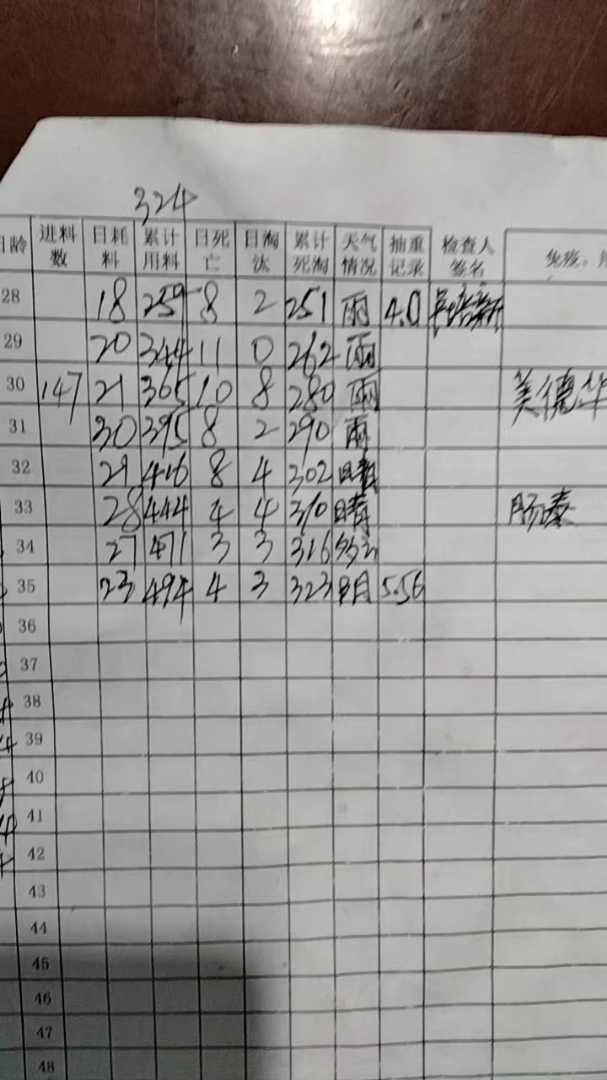 324
日龄 进料数 日耗料 累计用料 日死亡 日淘汰 累计死淘 天气情况 抽重记录 检查人签名 免疫、
28 18 259 8 2 251 雨 4.0
29 20 344 11 0 262 雨
30 147 21 365 10 8 280 雨 美德华
31 30 395 8 2 290 雨
32 29 416 8 4 302 晴
33 28 444 4 4 310 晴 肠
34 27 471 3 3 316
35 23 494 4 3 323 5.56
36
37
38
39
40
41
42
43
44
45
46
47
48